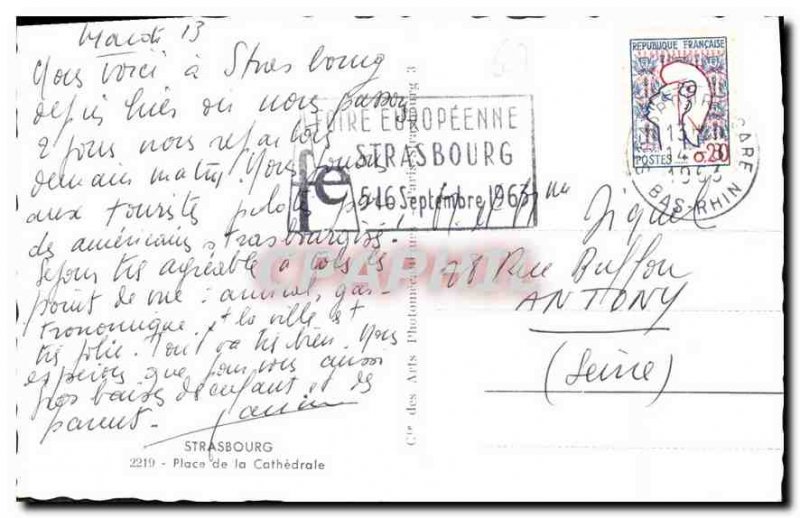 Mardi 13
Nous voici à Strasbourg
depuis hier où nous passons
2 jours nous repartons
demain matin. Nous
aux touristes
de américains strasbourgeois!
Séjour très agréable à tous les
point de vue : amical, gas-
tronomique. + la ville est
très jolie. Tout va très bien. Nous
espérons que pour vous aussi
Gros baisers de enfant et des
parent.
STRASBOURG
2219 - Place de la Cathédrale
Cie des Arts Photomécaniques Paris Strasbourg 3
FOIRE EUROPÉENNE
STRASBOURG
fe
5-16 Septembre 1963
RÉPUBLIQUE FRANÇAISE
POSTES
0.20
GARE
BAS-RHIN
1963
CPAPHIL
28 Rue Buffon
ANTONY
(Seine)